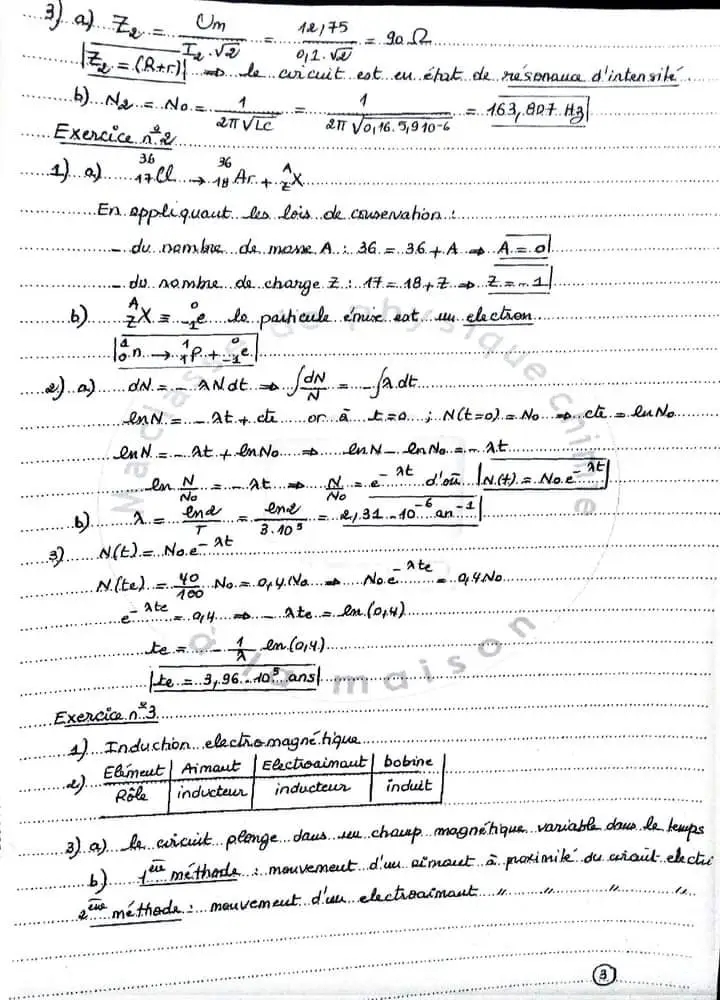 3) a) Z₂ = Um / (I₂.√2) = 12,75 / (0,1.√2) = 90 Ω
|Z₂ = (R+r)| ⇒ le circuit est en état de résonance d'intensité
b) N₂ = N₀ = 1 / (2π√LC) = 1 / (2π√(0,16.5,9 10⁻⁶)) = 163,807 Hz|
Exercice n°2
1) a) ³⁶₁₇Cl → ³⁶₁₈Ar + ᴬ_Z X
En appliquant les lois de conservation :
- du nombre de masse A : 36 = 36 + A ⇒ A = 0|
- du nombre de charge Z : 17 = 18 + Z ⇒ Z = -1|
b) ᴬ_Z X = ⁰₋₁e la particule émise est un electron
|¹₀n → ¹₁P + ⁰₋₁e|
2) a) dN = - λNdt ⇒ ∫dN/N = -∫λdt
lnN = - λt + cte or à t=0 ; N(t=0) = N₀ ⇒ cte = lnN₀
lnN = - λt + lnN₀ ⇒ lnN - lnN₀ = - λt
ln N/N₀ = - λt ⇒ N/N₀ = e^-λt d'où |N(t) = N₀.e^-λt|
b) λ = ln2 / T = ln2 / 3.10⁵ = 2,31.10⁻⁶ an⁻¹|
3) N(t) = N₀.e^-λt
N(te) = 40/100 N₀ = 0,4.N₀ ⇒ N₀.e^-λte = 0,4N₀
e^-λte = 0,4 ⇒ - λte = ln(0,4)
te = - 1/λ ln(0,4)
|te = 3,96.10⁵ ans|
Exercice n°3
1) Induction electromagnétique
2) Elément | Aimant | Electroaimant | bobine
Rôle | inducteur | inducteur | induit
3) a) le circuit plonge dans un champ magnétique variable dans le temps
b) 1ère méthode : mouvement d'un aimant à proximité du circuit electri
2ème méthode : mouvement d'un electroaimant " " " "
3
Ma classe de physique chimie à la maison